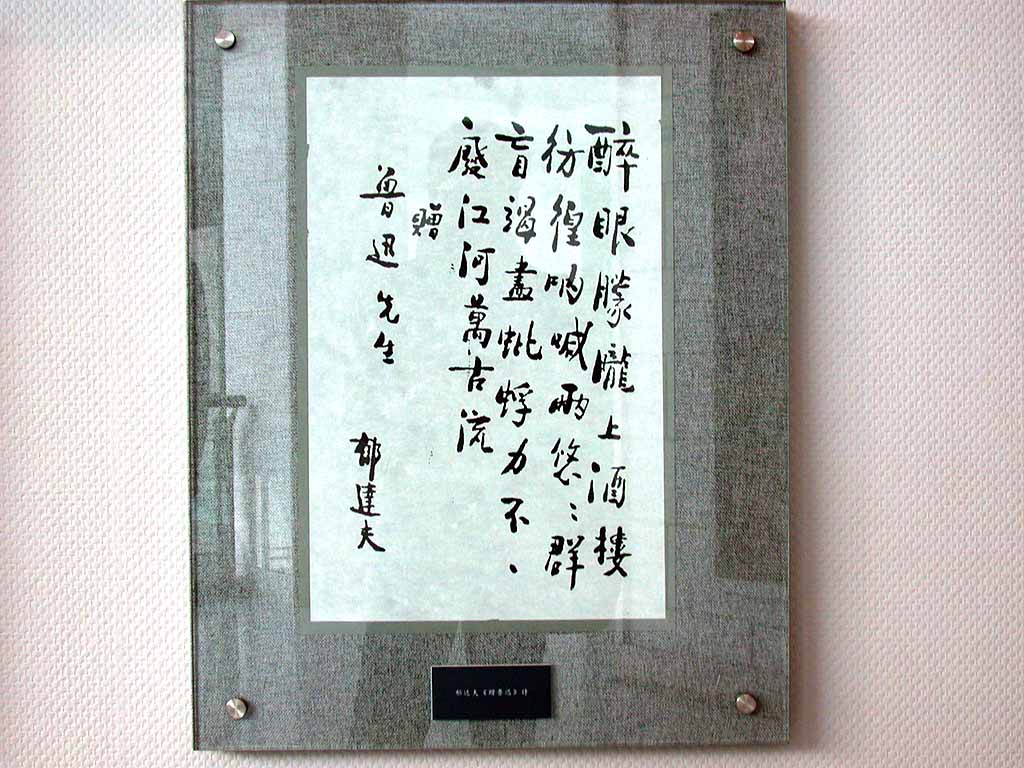 醉眼朦朧上酒樓
彷徨吶喊兩悠々群
盲竭盡蚍蜉力不、、
廢江河萬古流
贈
魯迅先生
郁達夫
郁达夫《赠鲁迅》诗